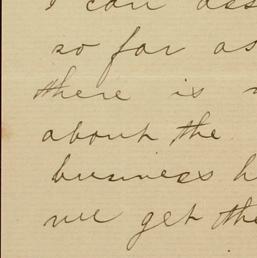 I can ass
so far as
there is
about the
business h
we get the